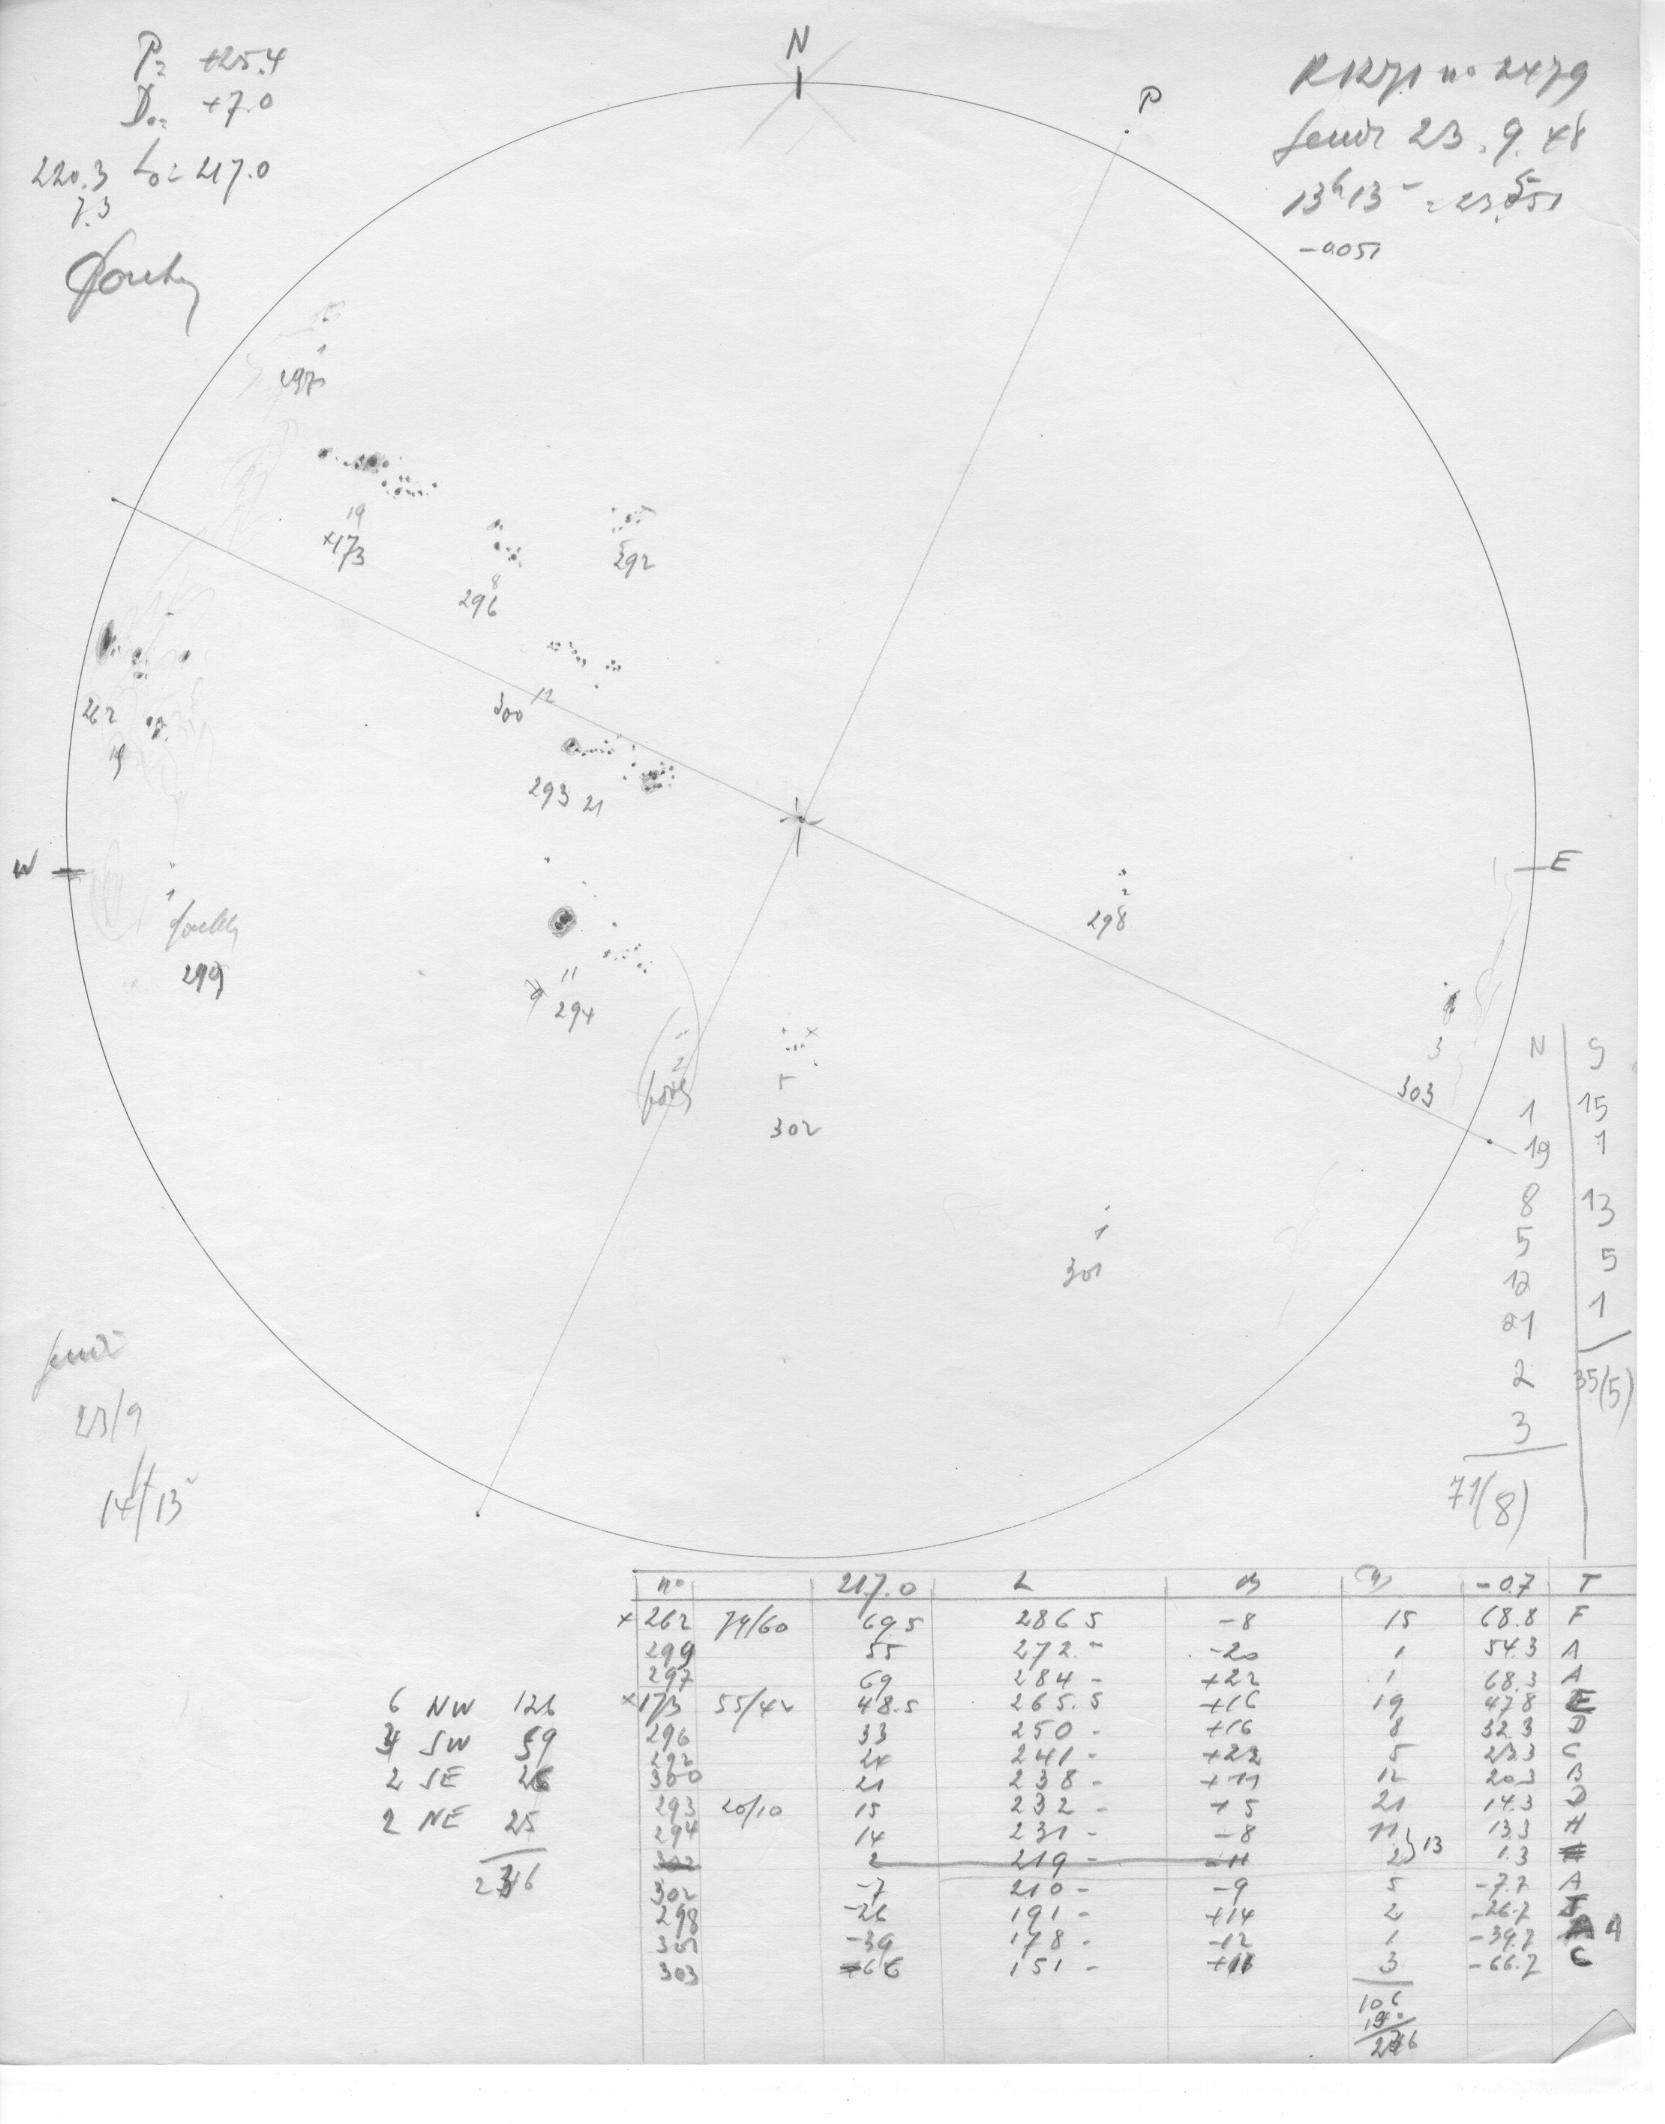 P= +25.4
D₀= +7.0
220.3 L₀= 217.0
7.3
N
P
no 2479
23.9.48
13h13
-0.051
297
1
19
×173
8
296
5
292
262
19
300 12
293 21
W
E
1
299
2
298
11
9 294
2
5
302
3
303
1
301
N S
1 15
19 1
8 13
5 5
12 1
21
2 35(5)
3
71(8)
23/9
14h13
no 217.0 L -0.7 T
×262 74/60 69.5 286.5 -8 15 68.8 F
299 55 272- -20 1 54.3 A
297 69 284- +22 1 68.3 A
×173 55/42 48.5 265.5 +16 19 47.8 E
296 33 250- +16 8 32.3 D
292 24 241- +22 5 23.3 C
300 21 238- +11 12 20.3 B
293 20/10 15 232- +5 21 14.3 D
294 14 231- -8 11 13.3 H
2 219- -11 2 }13 1.3
302 -7 210- -9 5 -7.7 A
298 -26 191- +14 2 -26.7
301 -39 178- -12 1 -39.7 A A
303 -66 151- +11 3 -66.7 C
106
6 NW 126
4 SW 59
2 SE 26
2 NE 25